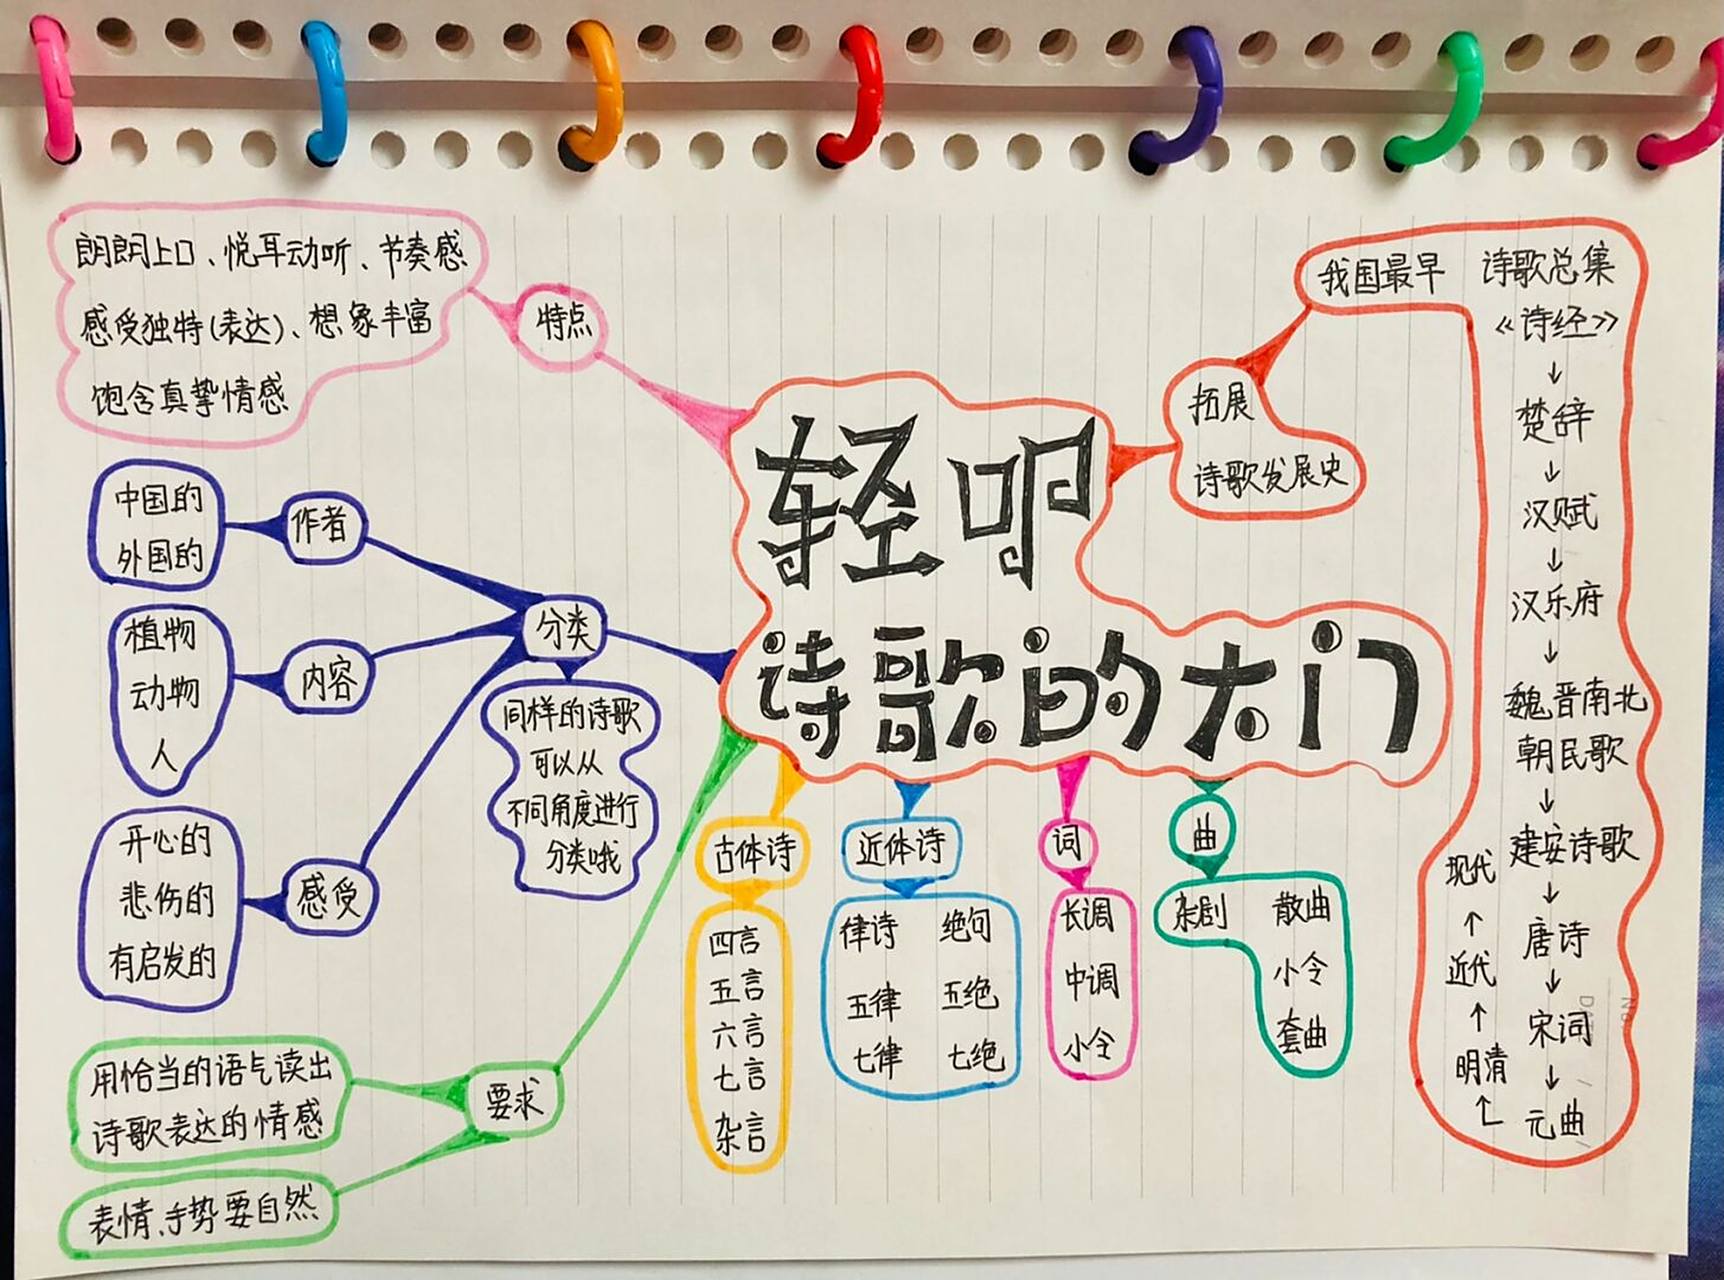 轻叩
诗歌的大门
特点
朗朗上口、悦耳动听、节奏感
感受独特(表达)、想象丰富
饱含真挚情感
分类
作者
中国的
外国的
内容
植物
动物
人
感受
开心的
悲伤的
有启发的
同样的诗歌
可以从
不同角度进行
分类哦
要求
用恰当的语气读出
诗歌表达的情感
表情、手势要自然
古体诗
四言
五言
六言
七言
杂言
近体诗
律诗 绝句
五律 五绝
七律 七绝
词
长调
中调
小令
曲
杂剧 散曲
小令
套曲
拓展
诗歌发展史
我国最早 诗歌总集
《诗经》
↓
楚辞
↓
汉赋
↓
汉乐府
↓
魏晋南北
朝民歌
↓
建安诗歌
↓
唐诗
↓
宋词
↓
元曲
↑
明清
↑
近代
↑
现代
No.